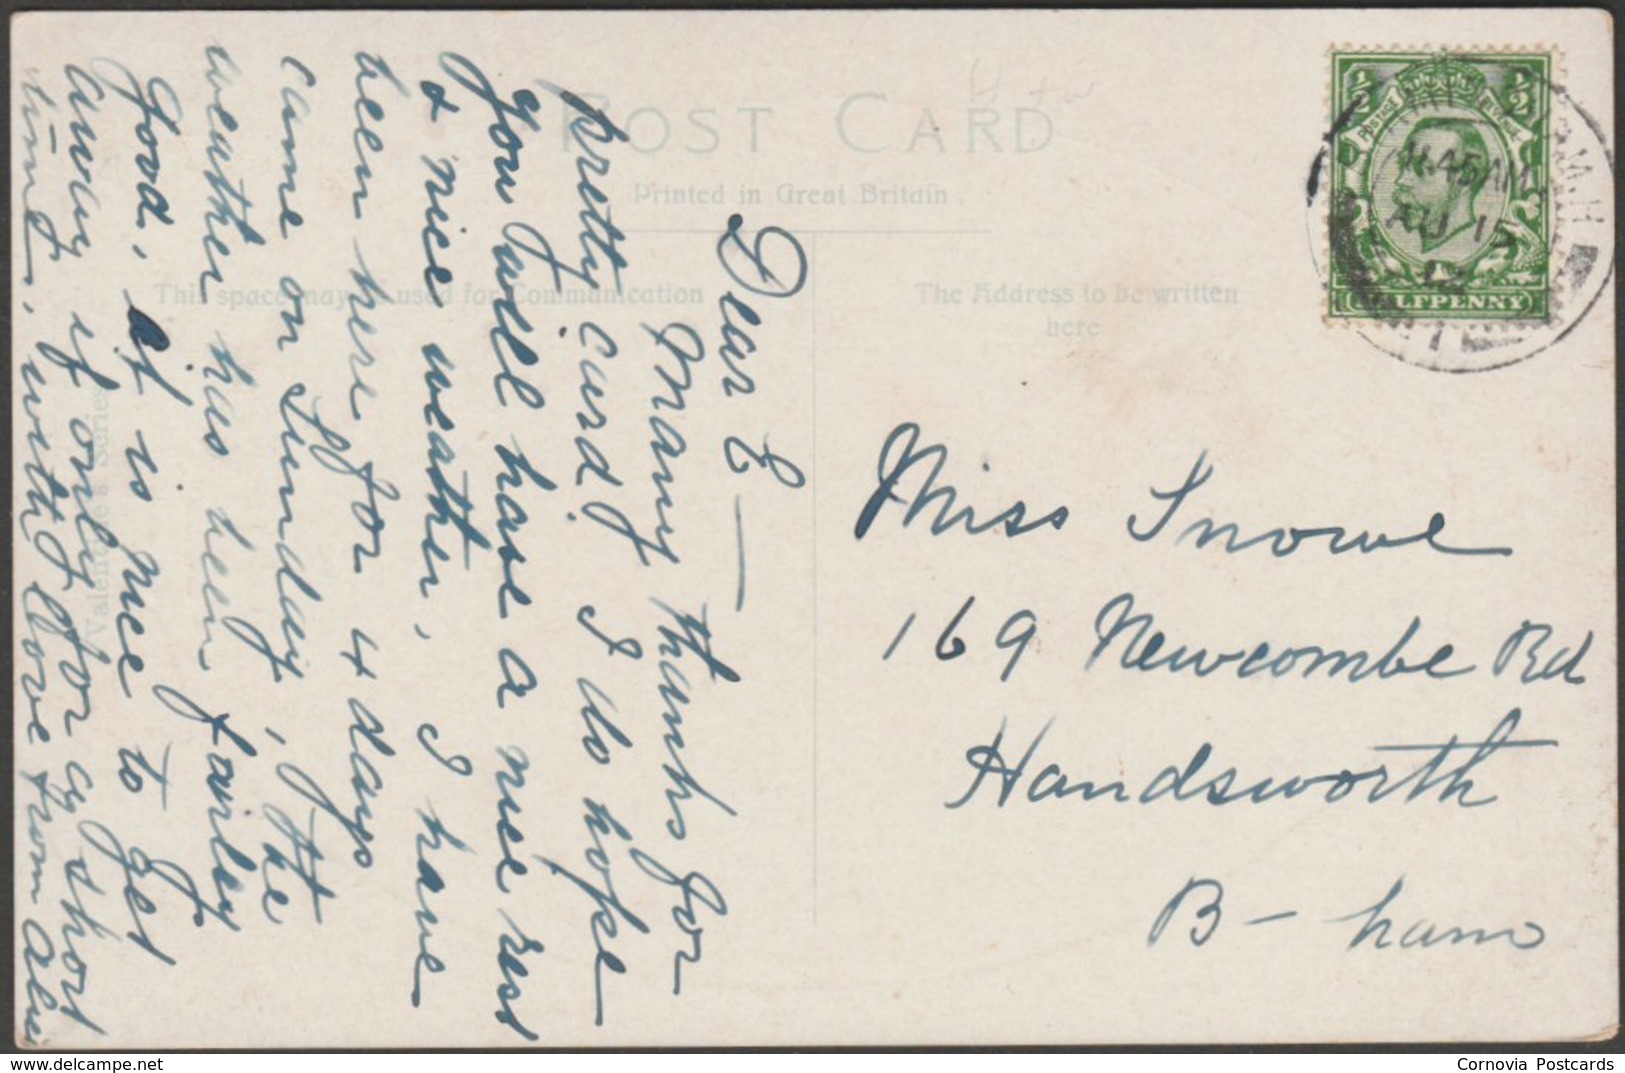 POST CARD
Printed in Great Britain
This space may be used for Communication
The Address to be written
here
Valentine's Series
Dear E —
Many thanks for
pretty card I do hope
you will have a nice rest
& nice weather. I have
been here for 4 days
came on Sunday, the
weather has been fairly
good, it is nice to get
away if only for a short
time, with love from
Miss Snowe
169 Newcombe Rd
Handsworth
B-ham
½ ½
POSTAGE REVENUE
HALFPENNY
11.45 AM
AU 15
12
delcampe.net
Cornovia Postcards